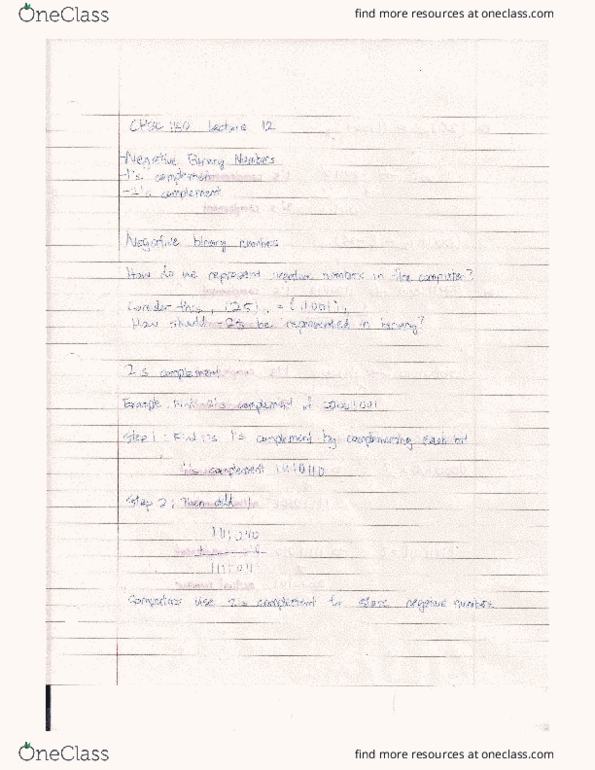 OneClass
find more resources at oneclass.com
CPSC 1150 Lecture 12
-Negative Binary Numbers
-1's complement
-2's complement
Negative binary numbers
How do we represent negative numbers in the computer?
Consider this, (25) = (11001)
How should -25 be represented in binary?
2's complement
Example: Find 2's complement of
Step 1: Find its 1's complement by complementing each bit
1's complement
Step 2: Then add 1
Computers use 2's complement to store negative numbers
OneClass
find more resources at oneclass.com